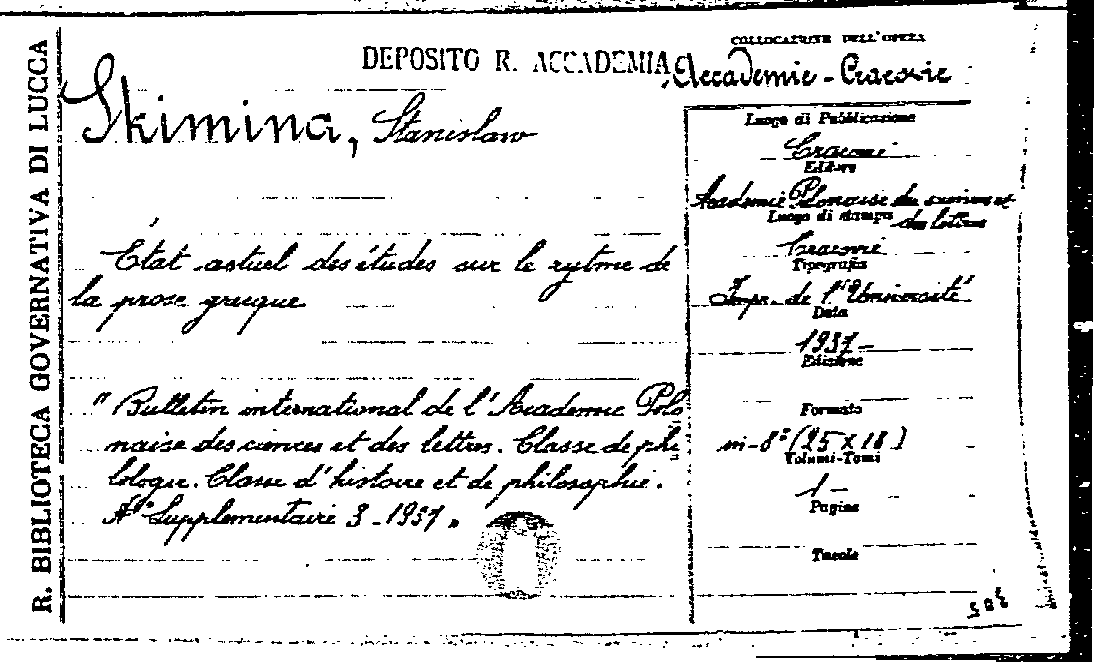 R. BIBLIOTECA GOVERNATIVA DI LUCCA
DEPOSITO R. ACCADEMIA
COLLOCAZIONE DELL'OPERA
Accademie - Cracovie
Skimina, Stanislaw
État actuel des études sur le rytme de
la prose grecque
"Bulletin international de l'Academie Polo
naise des ciences et des lettres. Classe de phi
lologie. Classe d'histoire et de philosophie.
N° Supplementaire 3 - 1937"
Luogo di Pubblicazione
Cracovie
Editore
Academie Polonaise des sciences et
des lettres
Luogo di stampa
Cracovie
Tipografia
Impr. de l'Université
Data
1937 -
Edizione
Formato
in-8° (25 x 18)
Volumi-Tomi
1 -
Pagine
Tavole